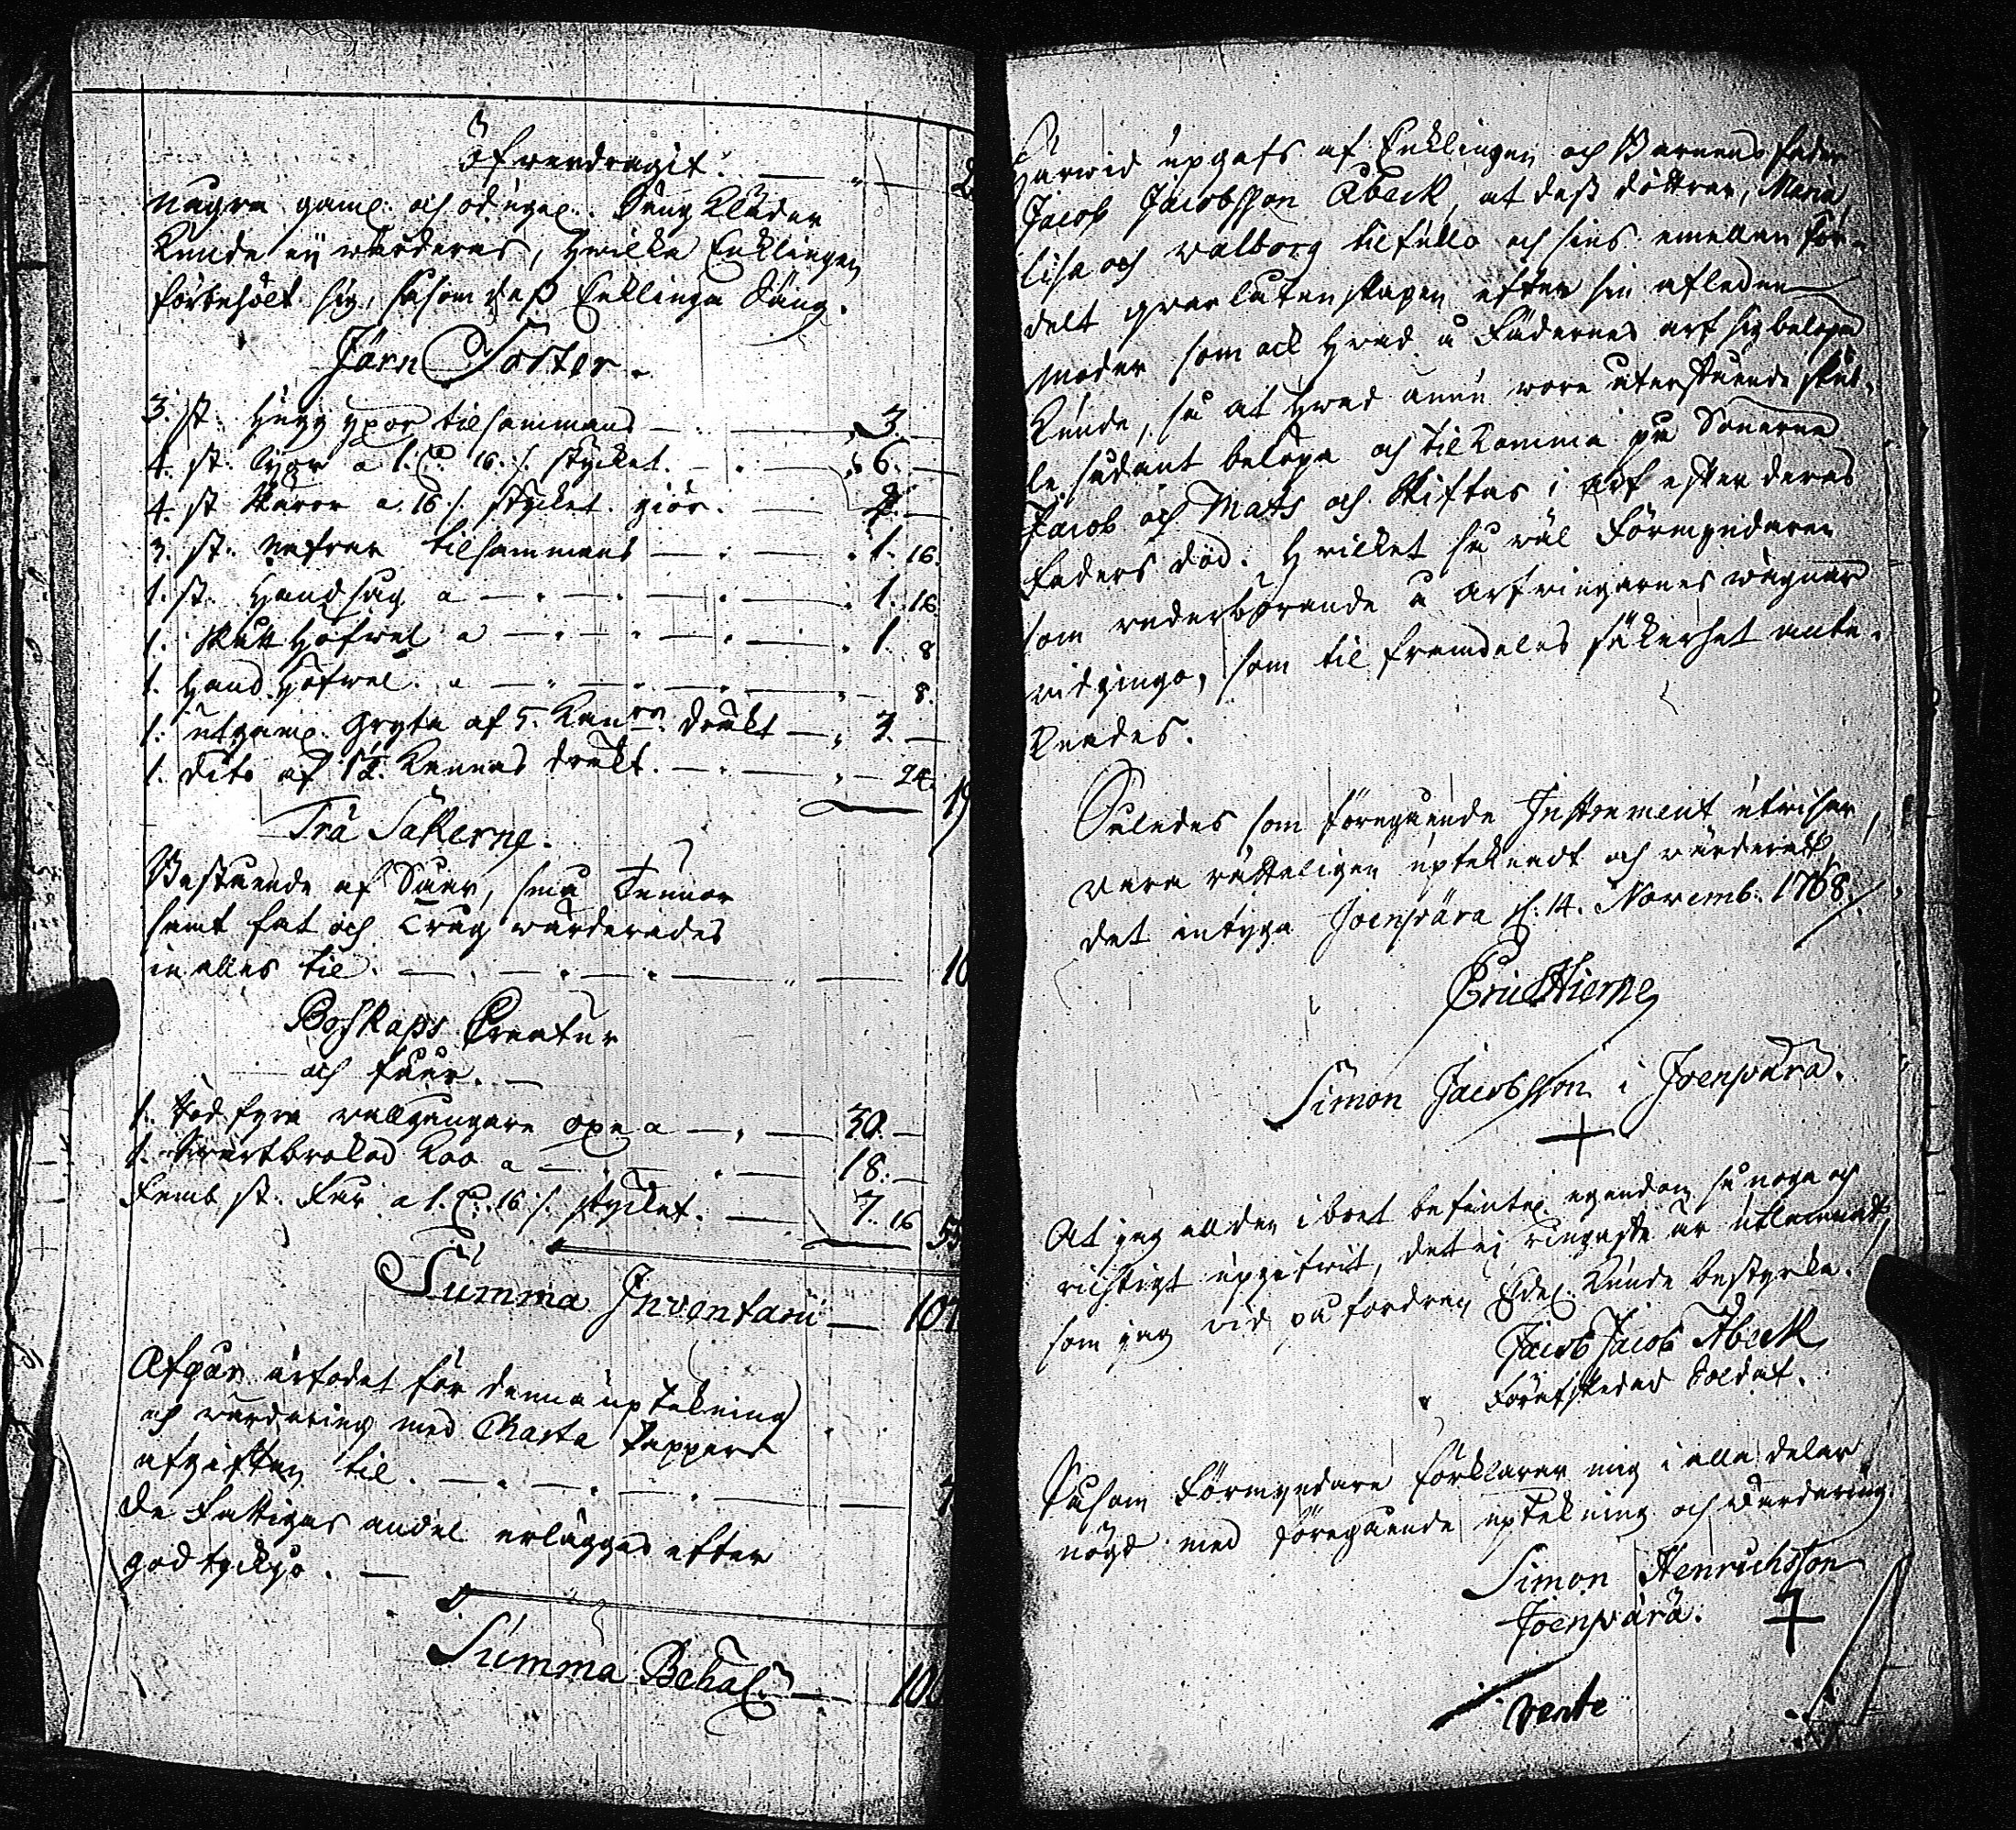 Öfwerdragit. — 2
Några gaml. och odugel. Säng Kläder
Kunde ej wärderas, hwilka Enklingen
förbehölt sig, såsom dess Enklinga Säng.
Järn Saker.
3. st: Hugg yxor tilsammans — 3. —
4. st. Lijor a 1. D. 16. /. stycket. — 6. —
4. st Skäror a 16 /. stycket. giör. — 2. —
3. st. Nafrar tilsammans — 1. 16.
1. st. Handsåg a — 1. 16.
1. Skått Höfwel a — 1. 8
1. Hand Höfwel. a — 8.
1. utgaml. Gryta af 5. Kan:rs drakt — 3. —
1. dito af 1 1/2. Kannas drakt. — 24. 19
Trä Sakerne.
Bestående af Såar, små Tunnor
samt fat och Tråg wärderades
in alles til. — 10
Boskaps Creatur
och Fåår. —
1. Röd fyra wallgångare oxe a — 30. —
1. Swartbrokod Koo a — 18. —
Femb st. Får a 1. D. 16 /. stycket. — 7. 16 55
Summa Inventarii — 107
Afgår arfodet för denna uptekning
och wärdering med Charta Pappers
afgiften til. — 7
De Fattigas andel erlägges efter
godtyckjo. —
Summa Behål: — 100
Härwid upgafs af Enklingen och Barnens fader
Jacob Jacobsson Åbeck, at dess döttrar, Maria,
Lisa och Walborg tilfullo och sins emellan för-
delt qwarlåtenskapen efter sin afledne
moder som ock hwad å Fädernes arf sig belöpa
Kunde, så at hwad ännu wore utestående skul-
le sådant belöpa och tilkomma på Sönerne
Jacob och Mats och skiftas i arf efter deras
Faders död. Hwilket så wäl Förmyndaren
som wederbörande å arfwingarnes wägnar
widgingo, som til framdeles säkerhet ante-
knades.
Således som föregående Instrument utwisar,
wara rätteligen uptecknadt och wärderadt
det intyga Joenswara d: 14. Novemb: 1768.
Eric Hierne
Simon Jacobsson i Joenswara.
+
At jag all den i boet befintel. egendom så noga och
richtigt uppgifwit, det ej ringaste är utlemnadt,
som jag wid påfordran Edel. Kunde bestyrka.
Jacob Jacob Åbeck
Förafskedad Soldat.
Såsom Förmyndare förklarar mig i alla delar
nögd med föregående uptekning och wärdering.
Simon Henrichsson
Joenswara. +
verte